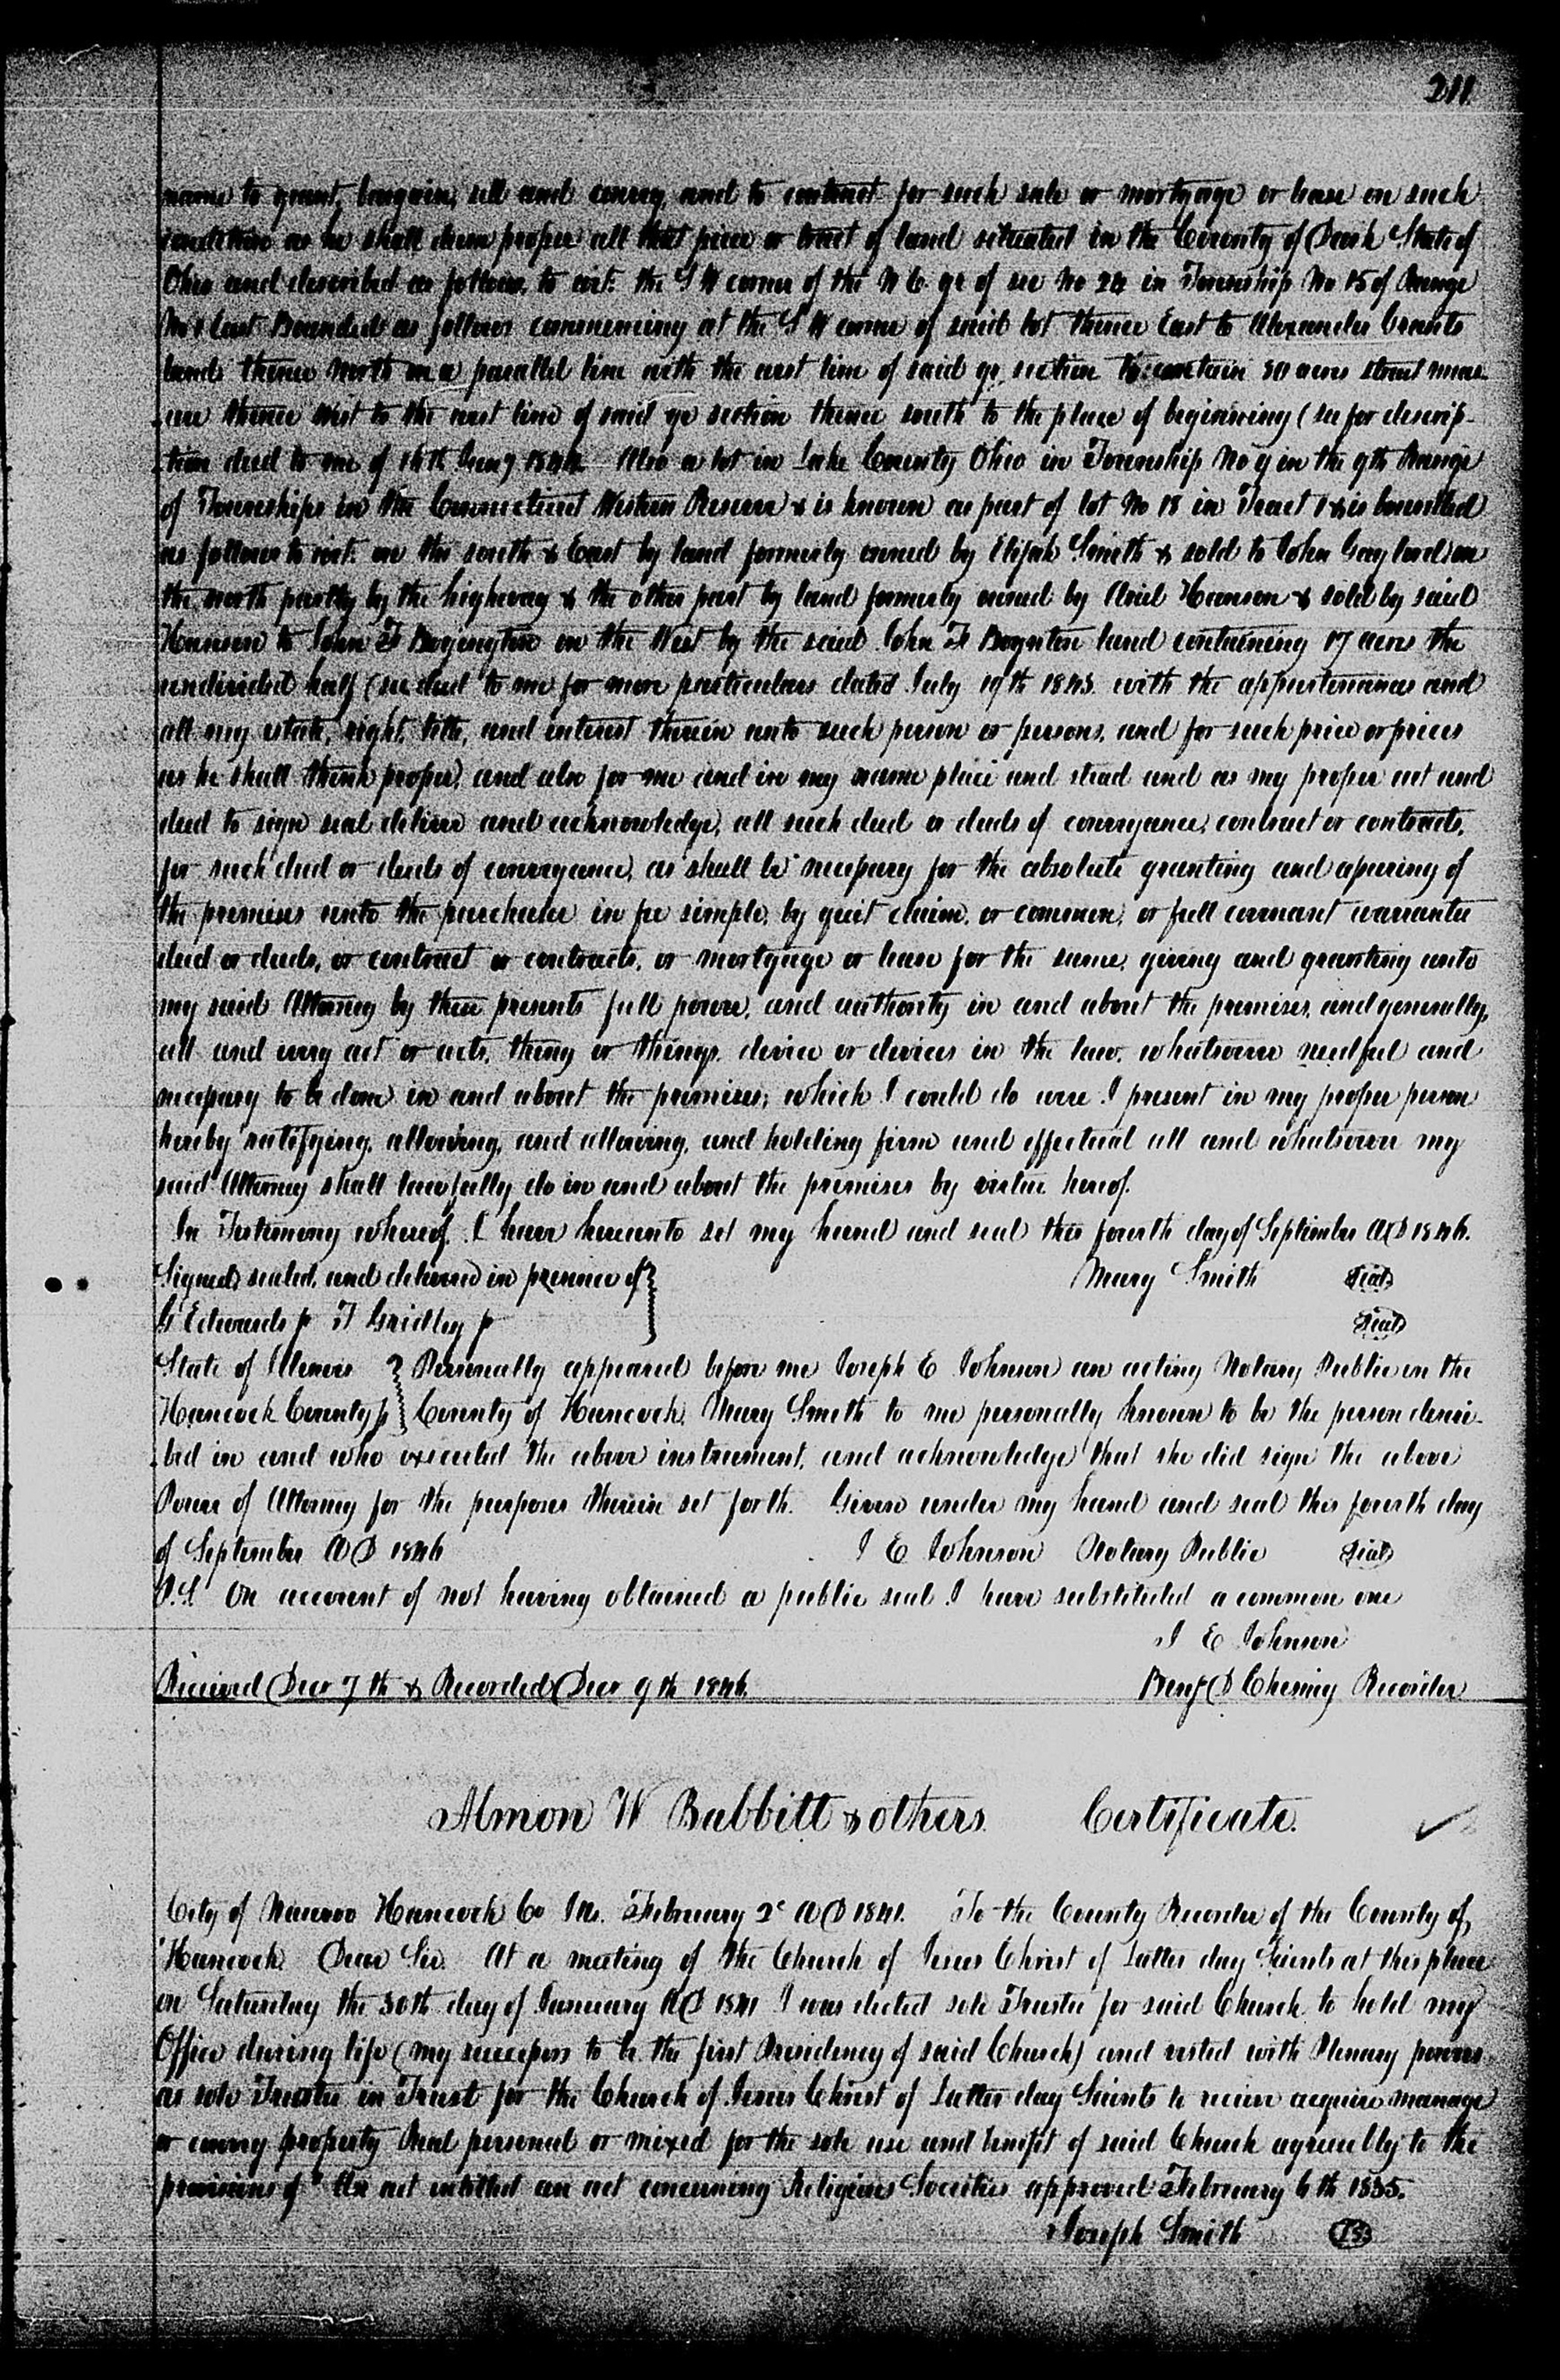 211
name to grant, bargain, sell and convey, and to contract for such sale or mortgage or lease on such
condition as he shall deem proper all that piece or tract of land situated in the County of Dark State of
Ohio and described as follows, to wit: the S W corner of the N E qr of sec No 24 in Township No 15 of Range
No 1 East Bounded as follows commencing at the S W corner of said lot thence East to Alexander
land thence North on a parallel line with the west line of said qr section to contain 50 acres strict meas
ure thence west to the west line of said qr section thence south to the place of beginning (see for descrip-
tion deed to me of 14th 1844. Also a lot in Lake County Ohio in Township No 9 in the 9th Range
of Townships in the Connecticut Western Reserve & is known as part of lot No 18 in Tract 1 & is bounded
as follows to wit: on the south & East by land formerly owned by Elijah Smith & sold to John Gaylord on
the north partly by the highway & the other part by land formerly owned by Ariel Hanson & sold by said
Hanson to John F Boyington on the West by the said John F Boynton land containing 17 acres the
undivided half (see deed to me for more particulars dated July 19th 1843. with the appurtenances and
all my estate, right, title, and interest therein unto such person or persons, and for such price or prices
as he shall think proper, and also for me and in my name place and stead and as my proper act and
deed to sign seal deliver and acknowledge, all such deed or deeds of conveyance, contract or contracts,
for such deed or deeds of conveyance, as shall be necessary for the absolute granting and assuring of
the premises unto the purchaser in fee simple, by quit claim, or common, or full covenant warrantee
deed or deeds, or contract or contracts, or mortgage or lease for the same, giving and granting unto
my said Attorney by these presents full power, and authority in and about the premises, and generally,
all and every act or acts, thing or things, device or devices in the law, whatsoever needful and
necessary to be done in and about the premises; which I could do were I present in my proper person
hereby ratifying, allowing, and allowing, and holding firm and effectual all and whatsoever my
said Attorney shall lawfully do in and about the premises by virtue hereof.
In Testimony whereof, I have hereunto set my hand and seal this fourth day of September A D 1846.
Signed, sealed, and delivered in presence of } Mary Smith Seal
G Edwards F Gridley Seal
State of Illinois } Personally appeared before me Joseph E Johnson an acting Notary Public in the
Hancock County } County of Hancock, Mary Smith to me personally known to be the person descri-
bed in and who executed the above instrument, and acknowledge that she did sign the above
Power of Attorney for the purposes therein set forth. Given under my hand and seal this fourth day
of September A D 1846 J E Johnson Notary Public Seal
P.S. On account of not having obtained a public seal I have substituted a common one
J E Johnson
Received Decr 7th & Recorded Decr 9th 1846. Benj D Chesney Recorder
Almon W Babbitt & others. Certificate.
City of Nauvoo Hancock Co Ills. February 2d A D 1841. To the County Recorder of the County of,
Hancock. Dear Sir. At a meeting of the Church of Jesus Christ of Latter day Saints at this place
on Saturday the 30th day of January A D 1841 I was elected sole Trustee for said Church to hold my
Office during life (my successors to be the first Presidency of said Church) and vested with Plenary powers
as sole Trustee in Trust for the Church of Jesus Christ of Latter day Saints to receive acquire manage
or convey property Real personal or mixed for the sole use and benefit of said Church agreeably to the
provisions of "An act entitled an act concerning Religious Societies approved February 6th 1835.
Joseph Smith LS